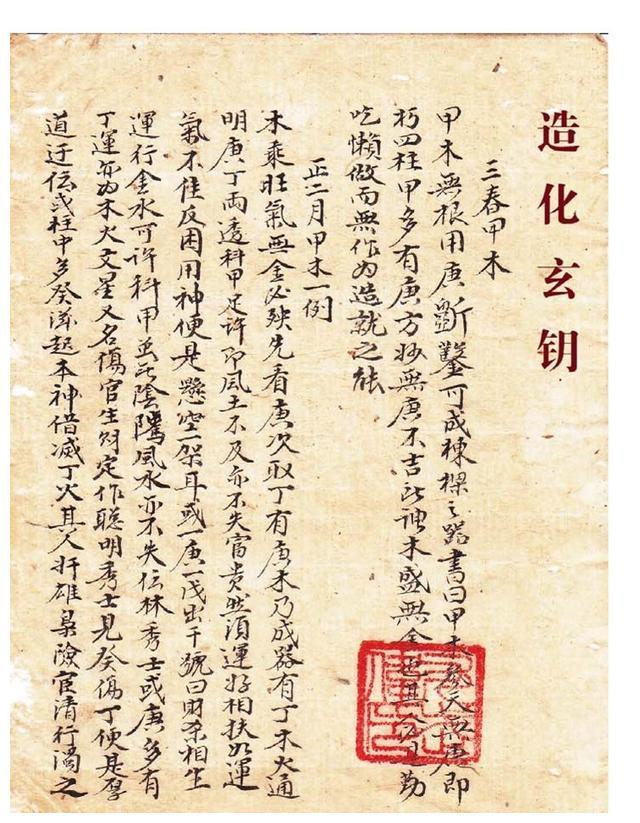 造化玄钥
三春甲木
甲木無根用庚斲鑿可成棟樑之器書曰甲木參天無庚即
朽四柱甲多有庚方妙無庚不吉此 木盛無金也其 勤
吃懶做而無作为造就之能
正二月甲木一例
木乘旺氣無金必殃先看庚次取丁有庚木乃成器有丁木火通
明庚丁兩透科甲足許即風土不及亦不失富贵然須運好相扶如運
氣不佳反困用神便是懸空一架耳或一庚一戊出干號曰財杀相生
運行金水可許科甲 陰隲風水亦不失 林秀士或庚多有
丁運亦为木火文星又名傷官生財定作聰明秀士見癸傷丁便是厚
道迂 或柱中多癸滋起本神借滅丁火其人奸雄梟險官清行濁之